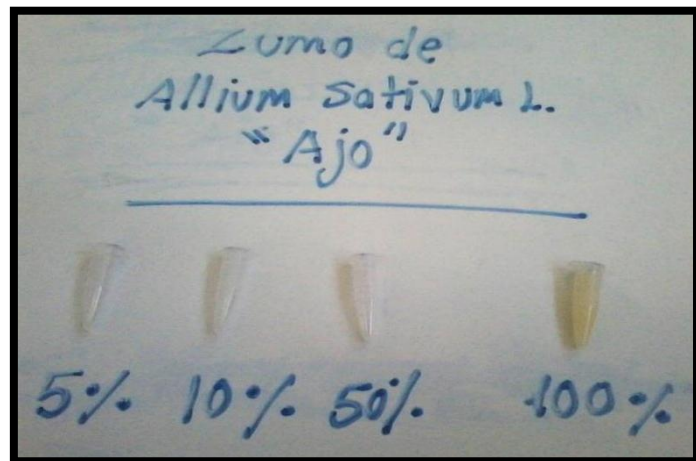 Zumo de
Allium Sativum L.
"Ajo"
5% 10% 50% 100%